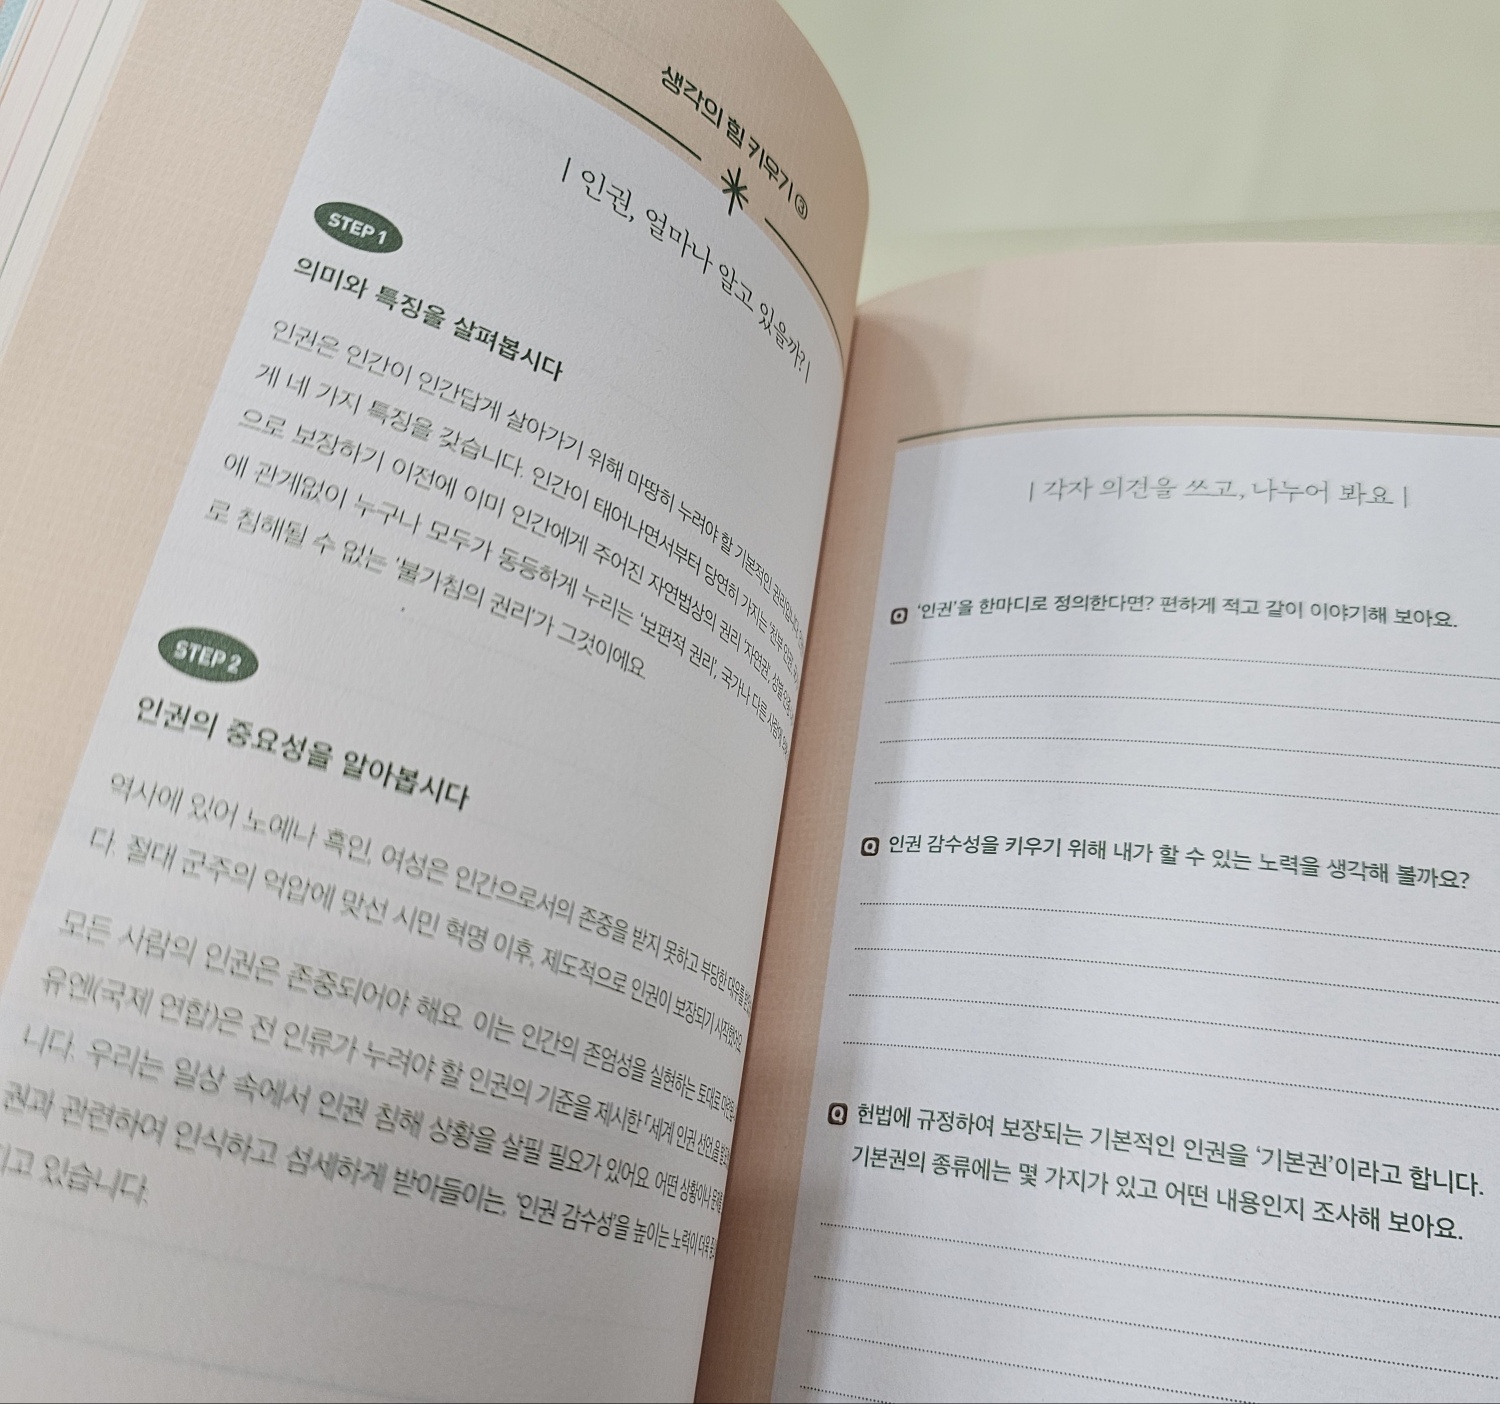 생각의 힘 키우기 ③
| 인권, 얼마나 알고 있을까? |
STEP 1
의미와 특징을 살펴봅시다
인권은 인간이 인간답게 살아가기 위해 마땅히 누려야 할 기본적인 권리입니다.
게 네 가지 특징을 갖습니다. 인간이 태어나면서부터 당연히 가지는 '천부 인권',
으로 보장하기 이전에 이미 인간에게 주어진 자연법상의 권리 '자연권', 성별,
에 관계없이 누구나 모두가 동등하게 누리는 '보편적 권리', 국가나 다른 사람이
로 침해될 수 없는 '불가침의 권리'가 그것이에요.
STEP 2
인권의 중요성을 알아봅시다
역사에 있어 노예나 흑인, 여성은 인간으로서의 존중을 받지 못하고 부당한 대우를
다. 절대 군주의 억압에 맞선 시민 혁명 이후, 제도적으로 인권이 보장되기 시작했어요.
모든 사람의 인권은 존중되어야 해요. 이는 인간의 존엄성을 실현하는 토대로
유엔(국제 연합)은 전 인류가 누려야 할 인권의 기준을 제시한 「세계 인권 선언」을
니다. 우리는 일상 속에서 인권 침해 상황을 살필 필요가 있어요. 어떤 상황이나
권과 관련하여 인식하고 섬세하게 받아들이는, '인권 감수성'을 높이는 노력이 더욱
고 있습니다.
| 각자 의견을 쓰고, 나누어 봐요 |
Q '인권'을 한마디로 정의한다면? 편하게 적고 같이 이야기해 보아요.
Q 인권 감수성을 키우기 위해 내가 할 수 있는 노력을 생각해 볼까요?
Q 헌법에 규정하여 보장되는 기본적인 인권을 '기본권'이라고 합니다.
기본권의 종류에는 몇 가지가 있고 어떤 내용인지 조사해 보아요.